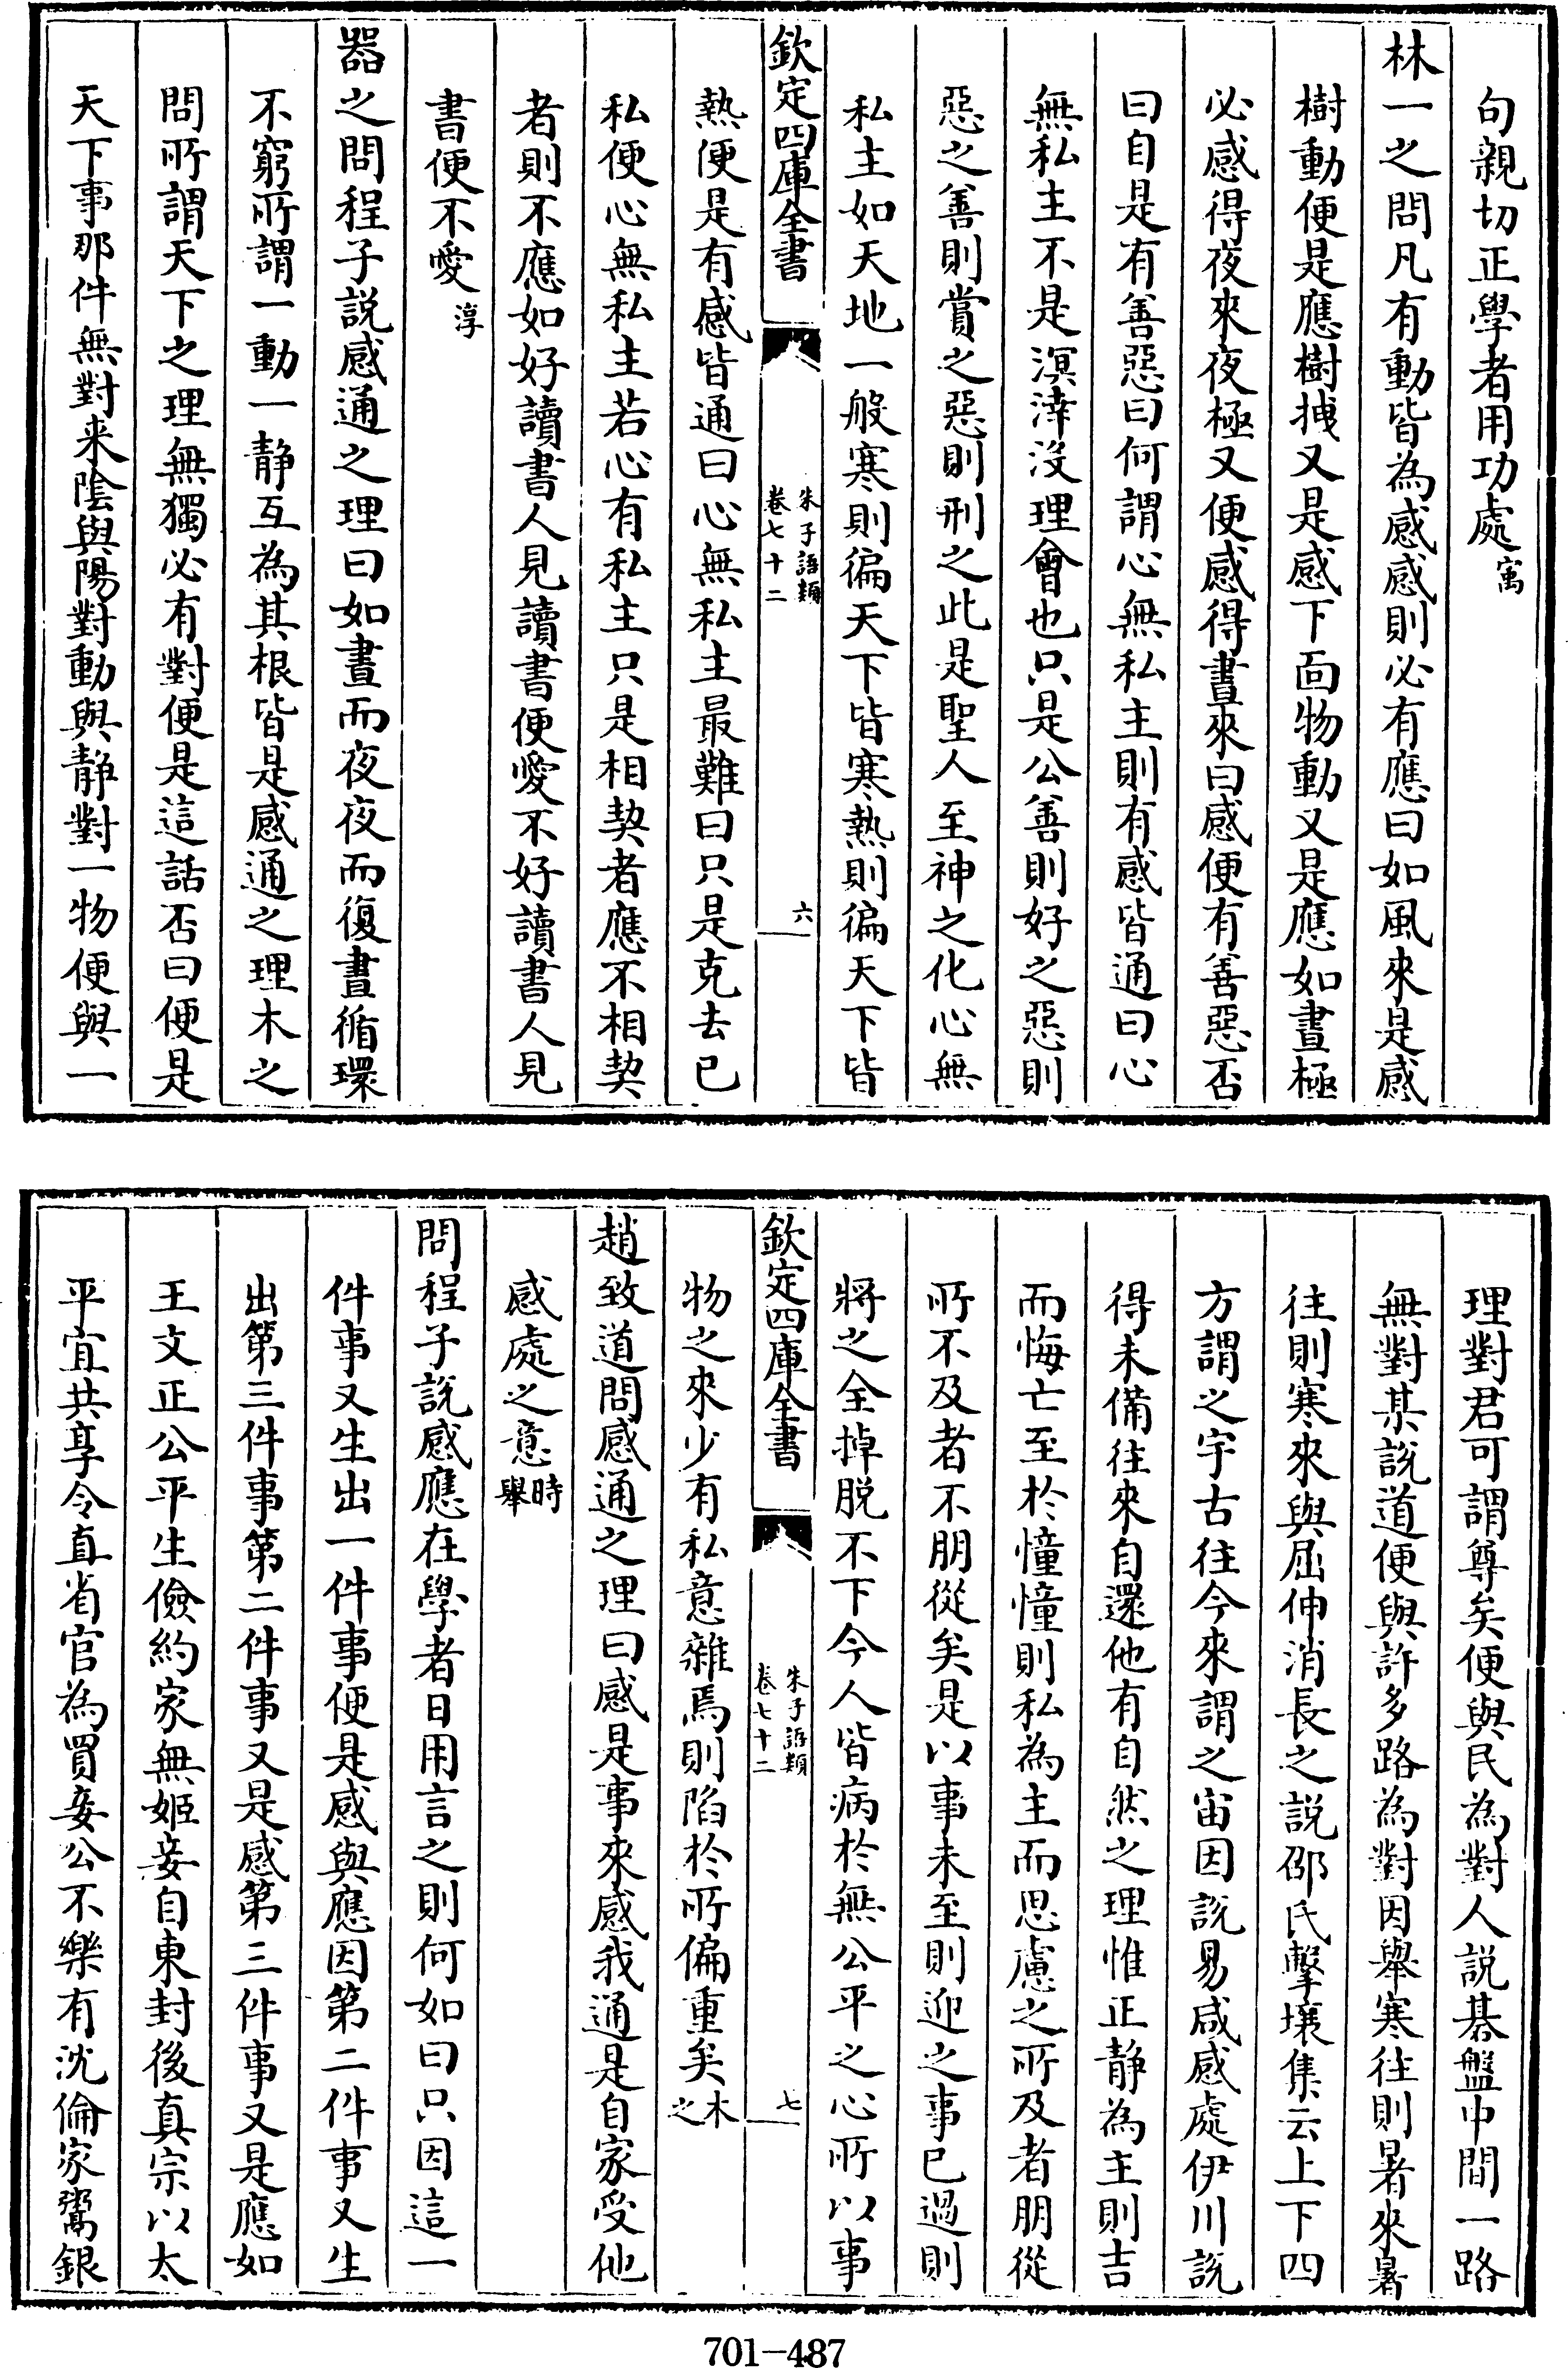 句親切正學者用功處㝢
林一之問凡有動皆為感感則必有應曰如風來是感
樹動便是應樹拽又是感下面物動又是應如晝極
必感得夜來夜極又便感得晝來曰感便有善惡否
曰自是有善惡曰何謂心無私主則有感皆通曰心
無私主不是溟涬沒理會也只是公善則好之惡則
惡之善則賞之惡則刑之此是聖人至神之化心無
私主如天地一般寒則徧天下皆寒熱則徧天下皆
欽定四庫全書
朱子語類
卷七十二
六
熱便是有感皆通曰心無私主最難曰只是克去已
私便心無私主若心有私主只是相契者應不相契
者則不應如好讀書人見讀書便愛不好讀書人見
書便不愛淳
器之問程子説感通之理曰如晝而夜夜而復晝循環
不窮所謂一動一静互為其根皆是感通之理木之
問所謂天下之理無獨必有對便是這話否曰便是
天下事那件無對来陰與陽對動與静對一物便與一
理對君可謂尊矣便與民為對人説碁盤中間一路
無對某説道便與許多路為對因舉寒往則暑來暑
往則寒來與屈伸消長之説邵氏擊壤集云上下四
方謂之宇古往今來謂之宙因説易咸感處伊川説
得未備往來自還他有自然之理惟正静為主則吉
而悔亡至於憧憧則私為主而思慮之所及者朋從
所不及者不朋從矣是以事未至則迎之事已過則
將之全掉脱不下今人皆病於無公平之心所以事
欽定四庫全書
朱子語類
卷七十二
七
物之來少有私意雜焉則陷於所偏重矣木之
趙致道問感通之理曰感是事來感我通是自家受他
感處之意時舉
問程子説感應在學者日用言之則何如曰只因這一
件事又生出一件事便是感與應因第二件事又生
出第三件事第二件事又是感第三件事又是應如
王文正公平生儉約家無姬妾自東封後真宗以太
平宜共享令直省官為買妾公不樂有沈倫家鬻銀
701-487